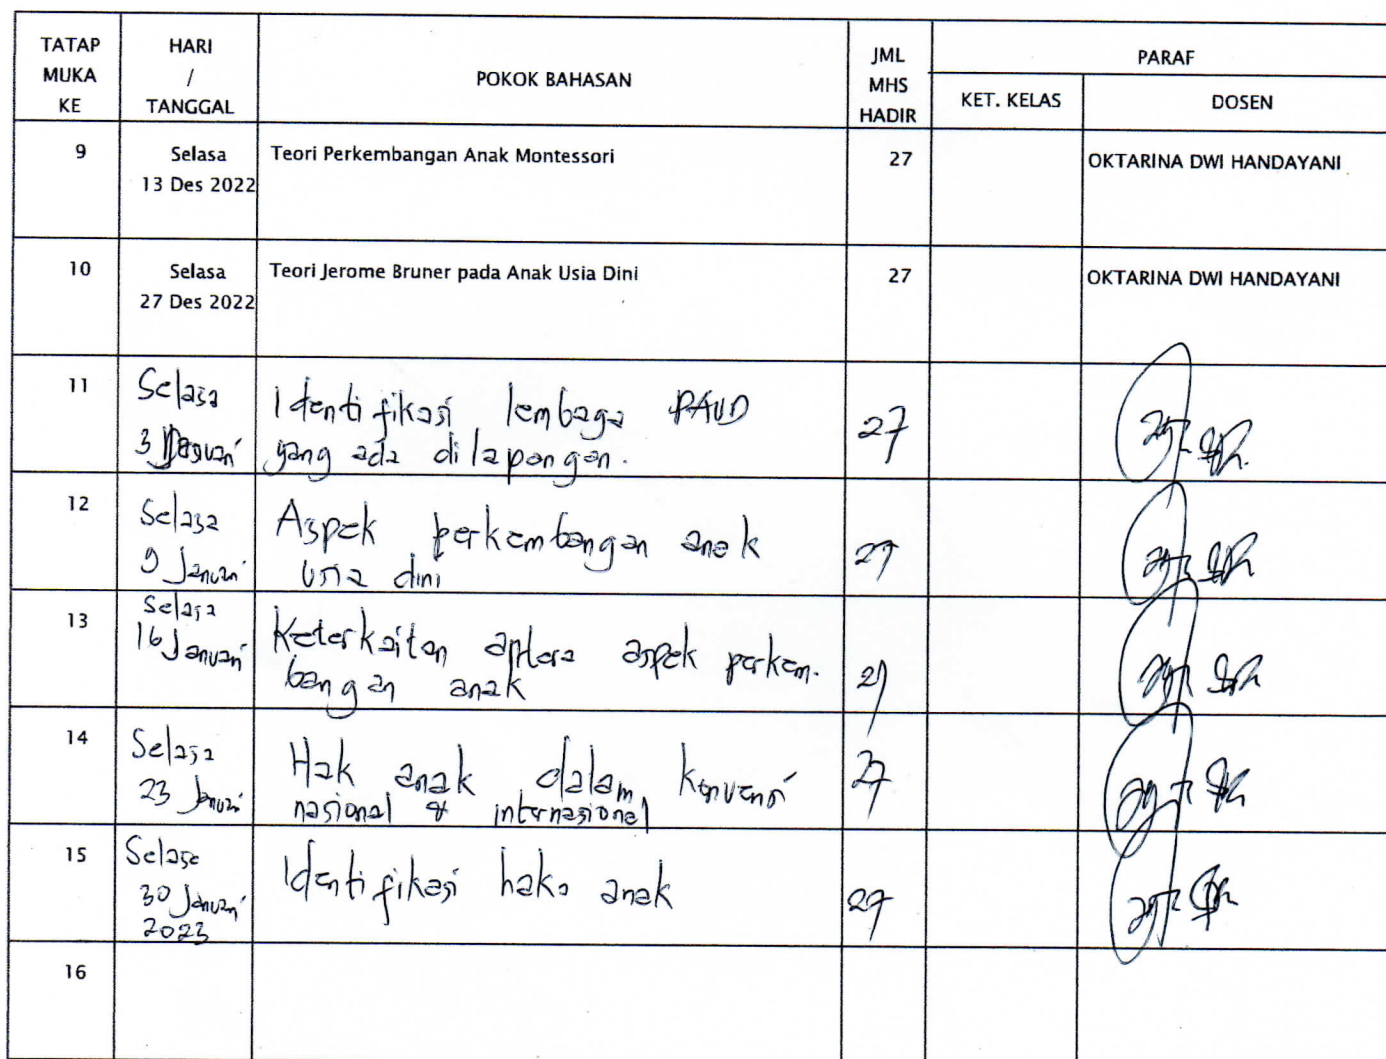 TATAP MUKA KE
HARI / TANGGAL
POKOK BAHASAN
JML MHS HADIR
PARAF
KET. KELAS
DOSEN
9
Selasa
13 Des 2022
Teori Perkembangan Anak Montessori
27
OKTARINA DWI HANDAYANI
10
Selasa
27 Des 2022
Teori Jerome Bruner pada Anak Usia Dini
27
OKTARINA DWI HANDAYANI
11
Selasa
3 Januari
Identifikasi lembaga PAUD
yang ada dilapangan.
27
12
Selasa
9 Januari
Aspek perkembangan anak
usia dini
27
13
Selasa
16 Januari
Keterkaitan antara aspek perkem.
bangan anak
27
14
Selasa
23 Januari
Hak anak dalam konvensi
nasional & internasional
27
15
Selasa
30 Januari
2023
Identifikasi hak2 anak
27
16